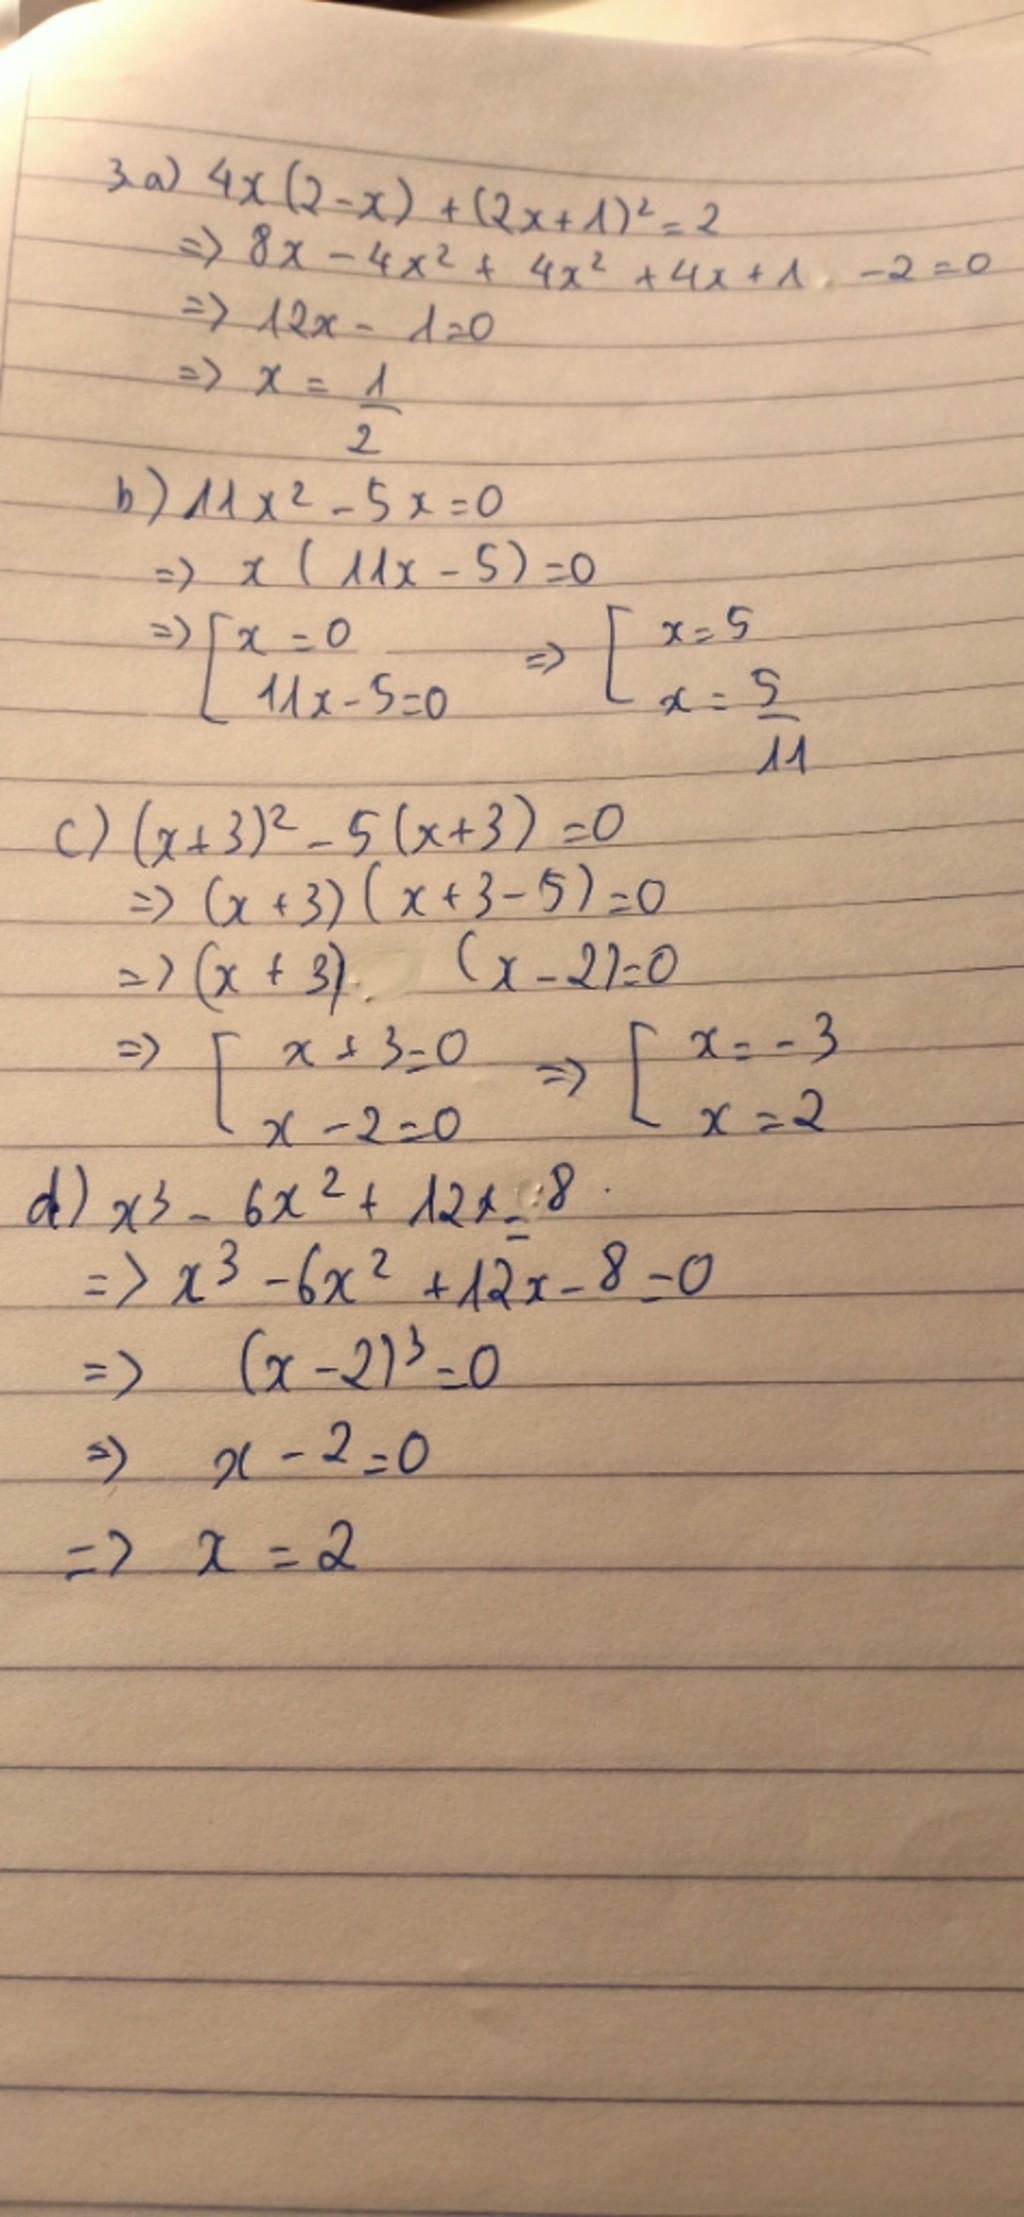 3.a) 4x(2-x) + (2x+1)² = 2
=> 8x - 4x² + 4x² + 4x + 1 - 2 = 0
=> 12x - 1 = 0
=> x = 1/2
b) 11x² - 5x = 0
=> x (11x - 5) = 0
=> [ x = 0 => [ x = 5
11x - 5 = 0 x = 5/11
c) (x+3)² - 5(x+3) = 0
=> (x+3)(x+3-5) = 0
=> (x+3) (x-2) = 0
=> [ x + 3 = 0 => [ x = -3
x - 2 = 0 x = 2
d) x³ - 6x² + 12x = 8
=> x³ - 6x² + 12x - 8 = 0
=> (x-2)³ = 0
=> x - 2 = 0
=> x = 2